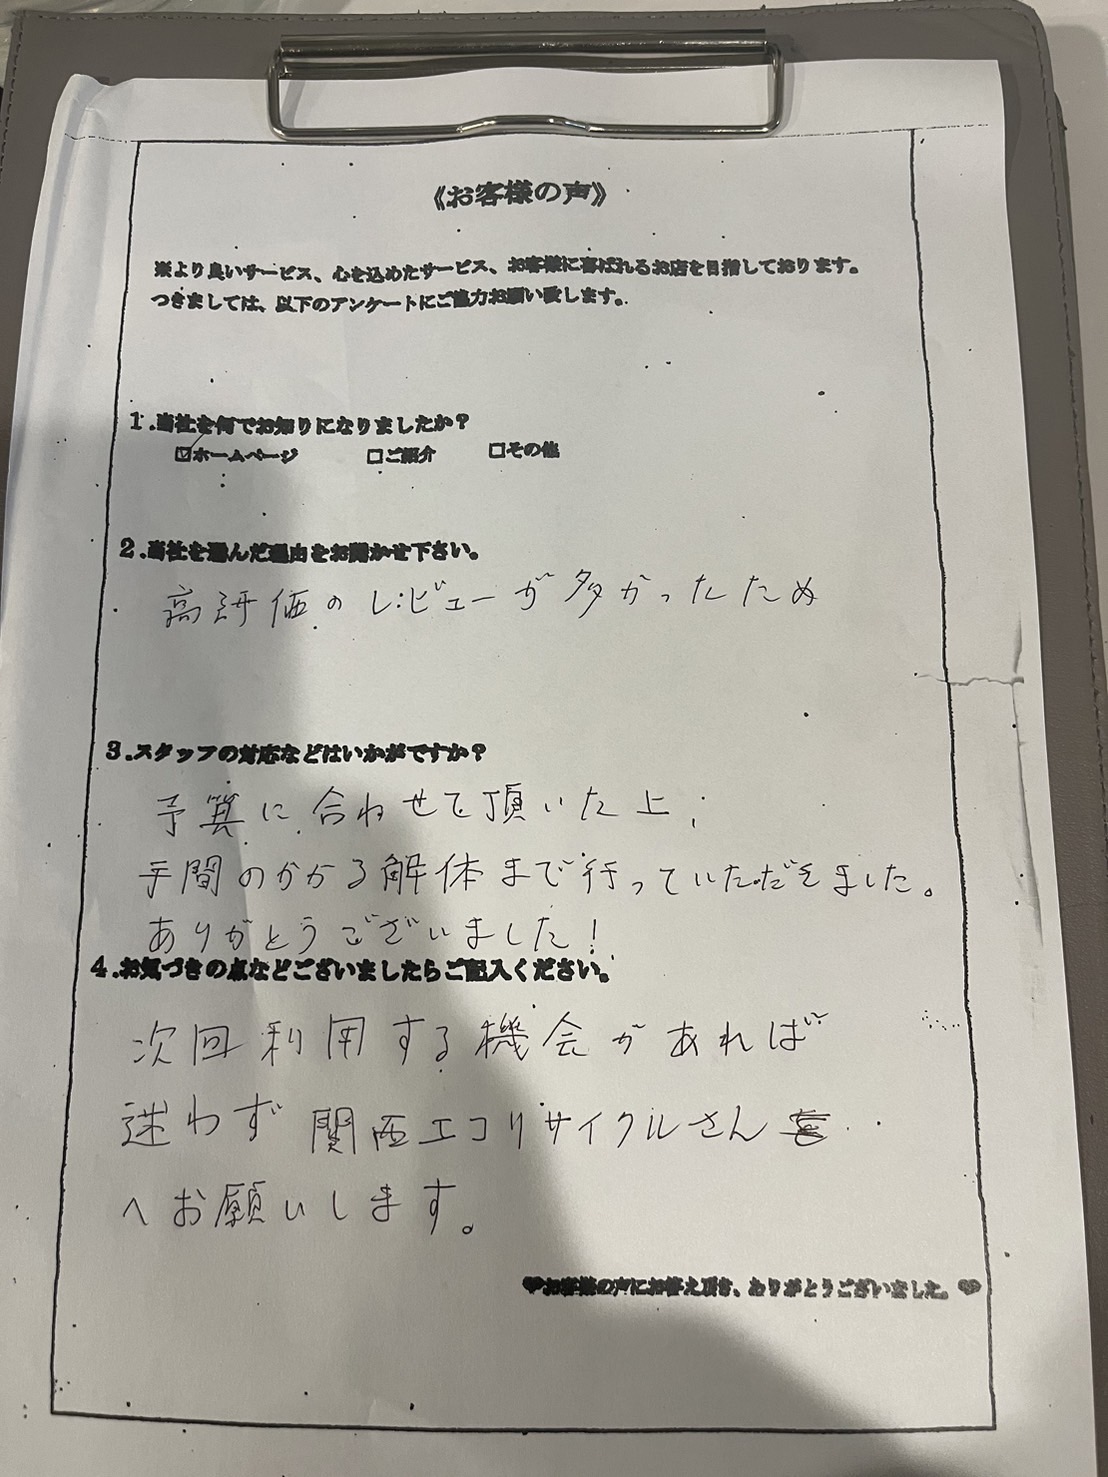 《お客様の声》
※より良いサービス、心を込めたサービス、お客様に喜ばれるお店を目指しております。
つきましては、以下のアンケートにご協力お願い致します。
1.当社を何でお知りになりましたか?
☑ホームページ □ご紹介 □その他
2.当社を選んだ理由をお聞かせ下さい。
高評価のレビューが多かったため
3.スタッフの対応などはいかがですか?
予算に合わせて頂いた上、
手間のかかる解体まで行っていただきました。
ありがとうございました!
4.お気づきの点などございましたらご記入ください。
次回利用する機会があれば
迷わず関西エコリサイクルさん
へお願いします。
♥お客様の声にお答え頂き、ありがとうございました。♥